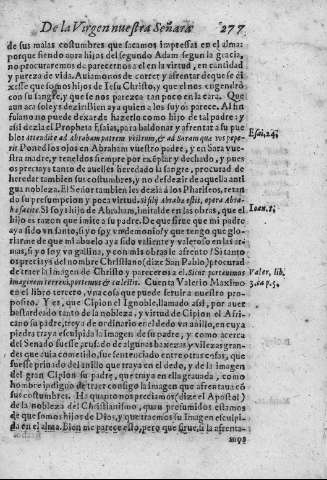 De la Virgen nuestra Señora 277
de sus malas costumbres que sacamos impressas en el alma:
porque siendo aora hijos del segundo Adam segun la gracia,
no procuraremos de parecernos a el en la virtud, en cantidad
y pureza de vida. Auiamonos de correr y afrentar de que se di
xesse que somos hijos de Iesu Christo, y que el nos engendrò
con su sangre, y que se nos parezca tan poco en la cara. Que
aun acá soleys dezir si bien aya quien a los suyos parece. Al hi
fulano no puede dexar de hazerlo como hijo de tal padre: y
assi dezia el Propheta Esaias, para baldonar y afrentar a su pue
blo: attendite ad Abraham patrem vestrum, & ad Saram quæ vos pepe-
rit Poned los ojos en Abraham vuestro padre, y en Sara vue-
stra madre, y teneldos siempre por exẽplar y dechado, y pues
os preciays tanto de auelles heredado la sangre, procurad de
heredar tambien sus costumbres, y no desdezir de aquella anti
gua nobleza. El Señor tambien les dezia a los Phariseos, retan
do su presumpcion y poca virtud. Si filij Abrahæ estis, opera Abra-
hæ facite. Si soys hijos de Abraham, imitalde en las obras, que el
hijo es razon que imite a su padre. De que sirue que mi padre
aya sido vn santo, si yo soy vn demonio? y que tengo que glo-
riarme de que mi abuelo aya sido valiente y valeroso en las ar-
mas, si yo soy vn gallina, y con mis obras le afrento? Si tanto
os preciays del nombre Christiano (dize San Pablo,) procurad
de traer la Imagen de Christo y pareceros a el. Sicut portauimus
imaginem terreni, portemus & cælestis. Cuenta Valerio Maximo
en el libro tercero, vna cosa que puede seruir a nuestro pro-
posito. Y es, que Cipion el Ignoble, llamado assi, por auer
bastardeado tanto de la nobleza, y virtud de Cipion el Afri-
cano su padre, traya de ordinario en el dedo vn anillo, en cuya
piedra traya esculpida la Imagen de su padre, y como acerca
del Senado fuesse, acusado de algunas baxezas y vilezas gran-
des que cuia cometido, fue sentenciado entre otras cosas, que
fuesse priuado del anillo que traya en el dedo, y de la imagen
del gran Cipion su padre, que traya en ella grauada, como
hombre indigno de traer consigo la imagen que afrentaua cõ
sus costumbres. Ha quanto nos preciamos (dize el Apostol)
de la nobleza del Christianismo, quan presumidos estamos
de que somos hijos de Dios, y que traemos su Imagen esculpi-
da en el alma. Bien me parece esso, pero que sirue, si la afrenta-
mos
Esai, 24;
Ioan. 8;
Valer, lib,
3. ca